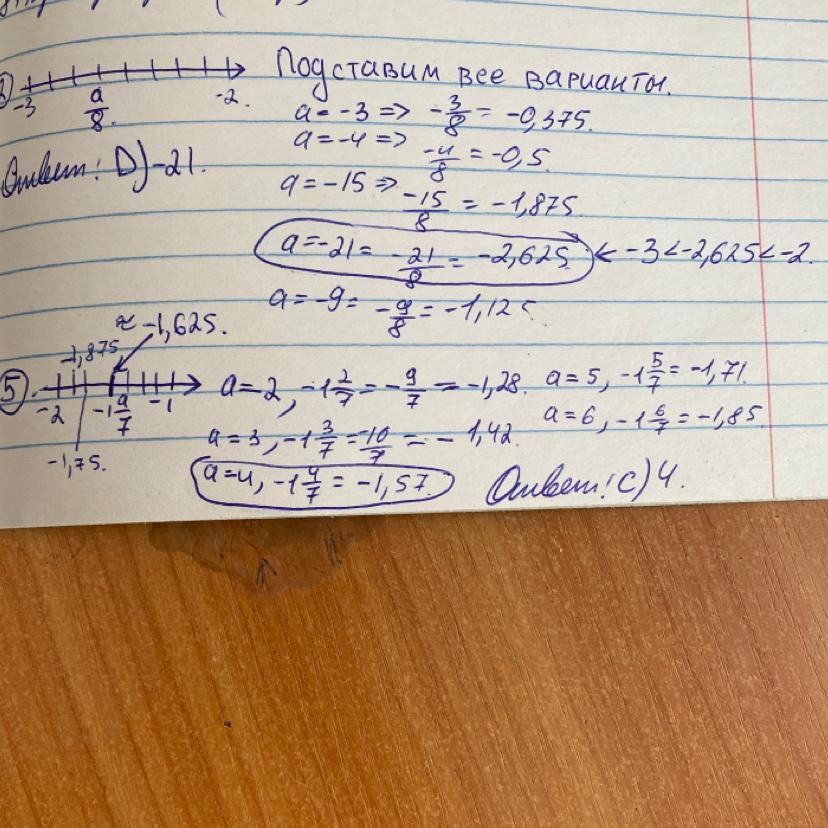 -3 a/8 -2.
Подставим все варианты.
a = -3 => -3/8 = -0,375.
a = -4 => -4/8 = -0,5.
Ответ: D) -21.
a = -15 => -15/8 = -1,875
a = -21 = -21/8 = -2,625. < -3 < -2,625 < -2.
a = -9 = -9/8 = -1,125
≈ -1,625.
-1,875
5 -2 -1 a/7 -1
-1,75.
a = 2, -1 2/7 = -9/7 = -1,28.
a = 5, -1 5/7 = -1,71.
a = 3, -1 3/7 = 10/7 = -1,42.
a = 6, -1 6/7 = -1,85
a = 4, -1 4/7 = -1,57.
Ответ: C) 4.